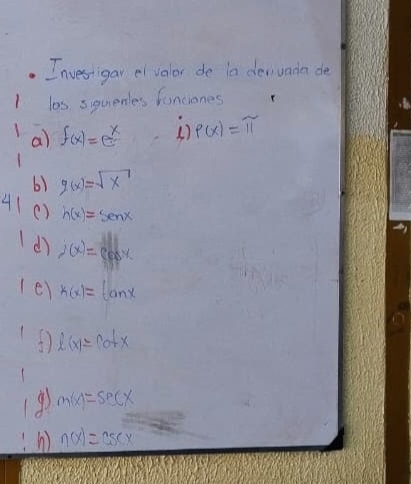 • Investigar el valor de la derivada de
las siguientes funciones
a) f(x)=eˣ
i) p(x)=π
b) g(x)=√x
c) h(x)=senx
d) j(x)=cosx
e) k(x)=tanx
f) l(x)=cotx
g) m(x)=secx
h) n(x)=cscx